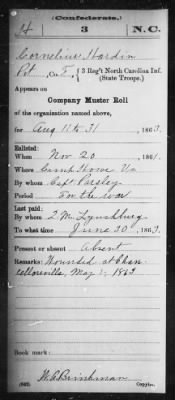 (Confederate.)
H 3 N.C.
Cornelius Hardin
Pvt, Co. E, { 3 Reg't North Carolina Inf.
(State Troops.)
Appears on
Company Muster Roll
of the organization named above,
for Aug 11 to 31, 1863.
Enlisted:
When Nov 20, 1861.
Where Camp Howe Va
By whom Capt Parsley
Period For the war
Last paid:
By whom 2 M Lynchburg
To what time June 30, 1863.
Present or absent Absent
Remarks: Wounded at Chan
cellorville, May 1, 1863
Book mark:
W. A. Brinkman
(642) Copyist.